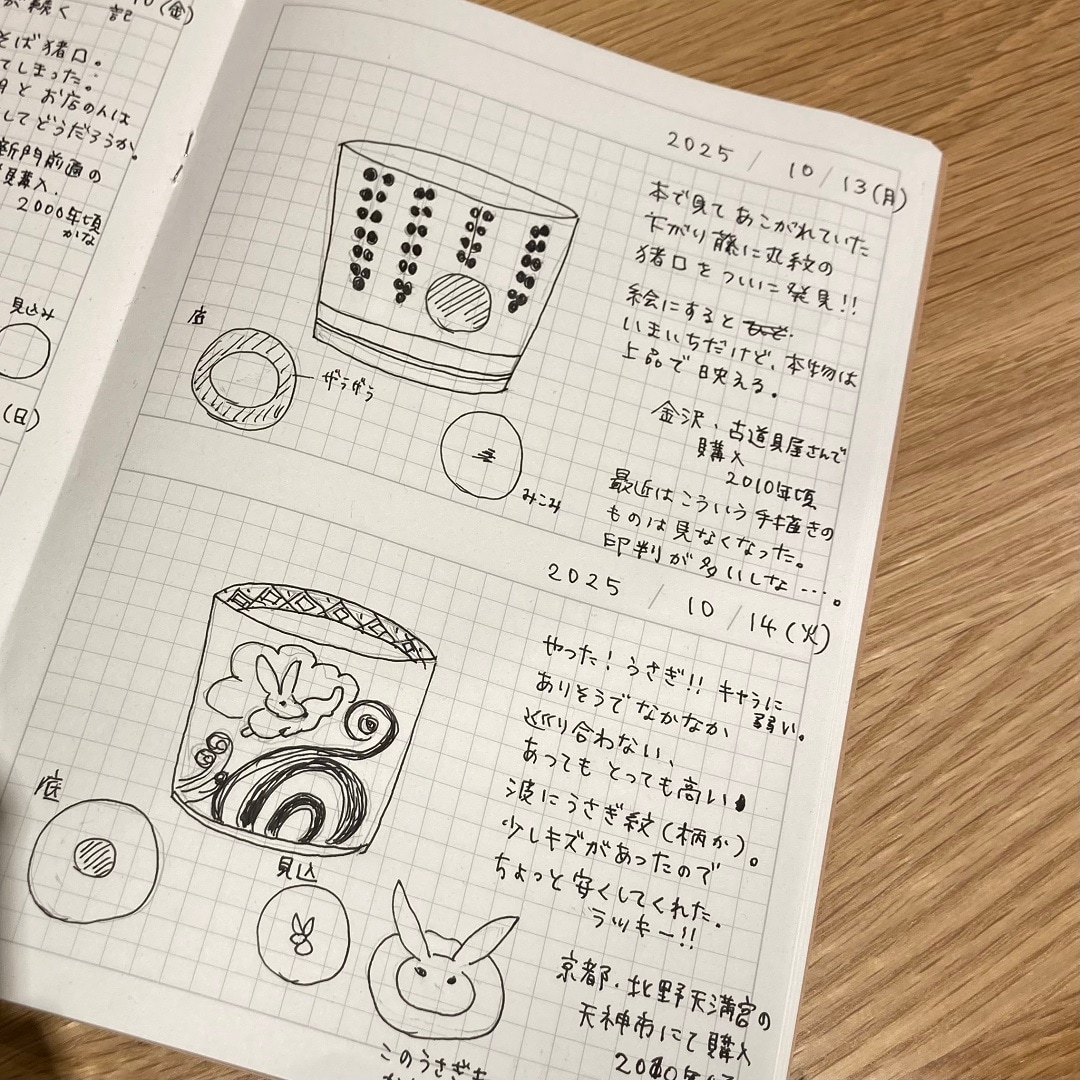 (金)
が続く 記
そば猪口。
てしまった。
と お店の人は
してどうだろうか。
新門前通の
購入.
2000年頃
かな
見込み
(日)
2025 / 10 / 13(月)
本で見て あこがれていた
下がり藤に丸紋の
猪口を ついに発見!!
絵にすると
いまいちだけど、本物は
上品で 映える。
金沢、古道具屋さんで
購入
2010年頃
最近は こういう 手描きの
ものは 見なくなった。
印判が 多いしな ・・・。
底
ざらざら
みこみ
2025 / 10 / 14(火)
やった! うさぎ!! キャラに
弱い。
ありそうで なかなか
巡り合わない、
あっても とっても 高い
波に うさぎ紋 (柄か)。
少しキズが あったので
ちょっと 安くしてくれた.
ラッキー!!
京都、北野天満宮の
天神市にて 購入
底
見込
このうさぎも